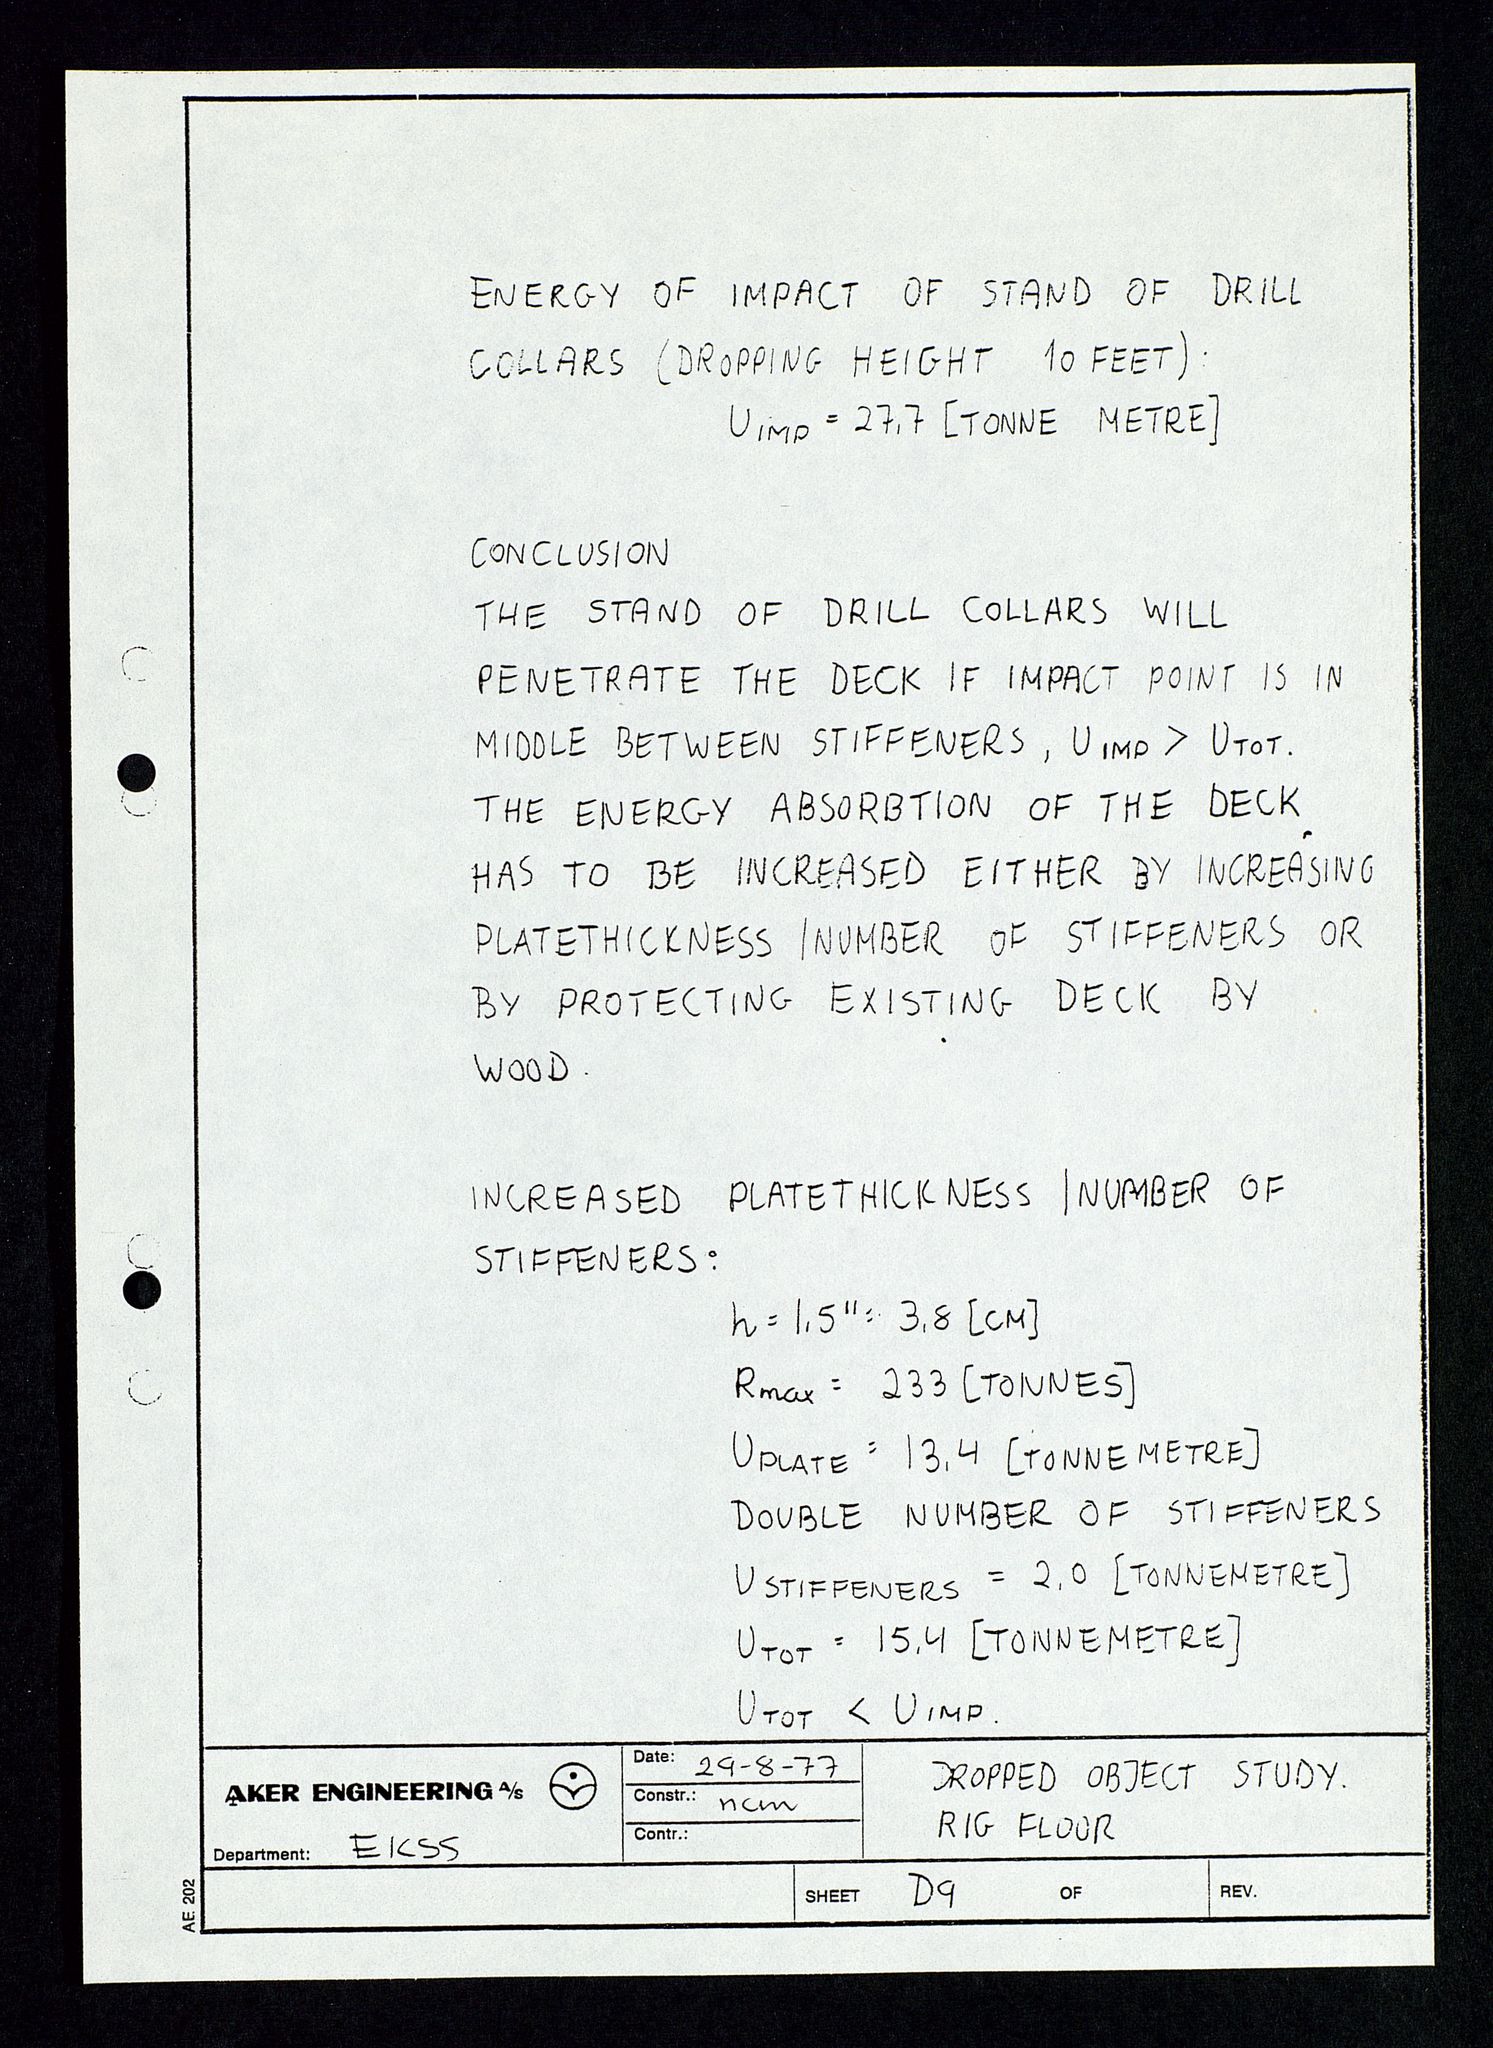 ENERGY OF IMPACT OF STAND OF DRILL
COLLARS (DROPPING HEIGHT 10 FEET):
UIMP = 27,7 [TONNE METRE]
CONCLUSION
THE STAND OF DRILL COLLARS WILL
PENETRATE THE DECK IF IMPACT POINT IS IN
MIDDLE BETWEEN STIFFENERS, UIMP > UTOT.
THE ENERGY ABSORBTION OF THE DECK
HAS TO BE INCREASED EITHER BY INCREASING
PLATETHICKNESS /NUMBER OF STIFFENERS OR
BY PROTECTING EXISTING DECK BY
WOOD.
INCREASED PLATETHICKNESS /NUMBER OF
STIFFENERS:
h = 1,5" = 3,8 [CM]
Rmax = 233 [TONNES]
UPLATE = 13,4 [TONNEMETRE]
DOUBLE NUMBER OF STIFFENERS
USTIFFENERS = 2,0 [TONNEMETRE]
UTOT = 15,4 [TONNEMETRE]
UTOT < UIMP.
AKER ENGINEERING A/S
Department: EKSS
Date: 29-8-77
Constr.: ncm
Contr.:
DROPPED OBJECT STUDY.
RIG FLOOR
SHEET D9 OF
REV.
AE. 202